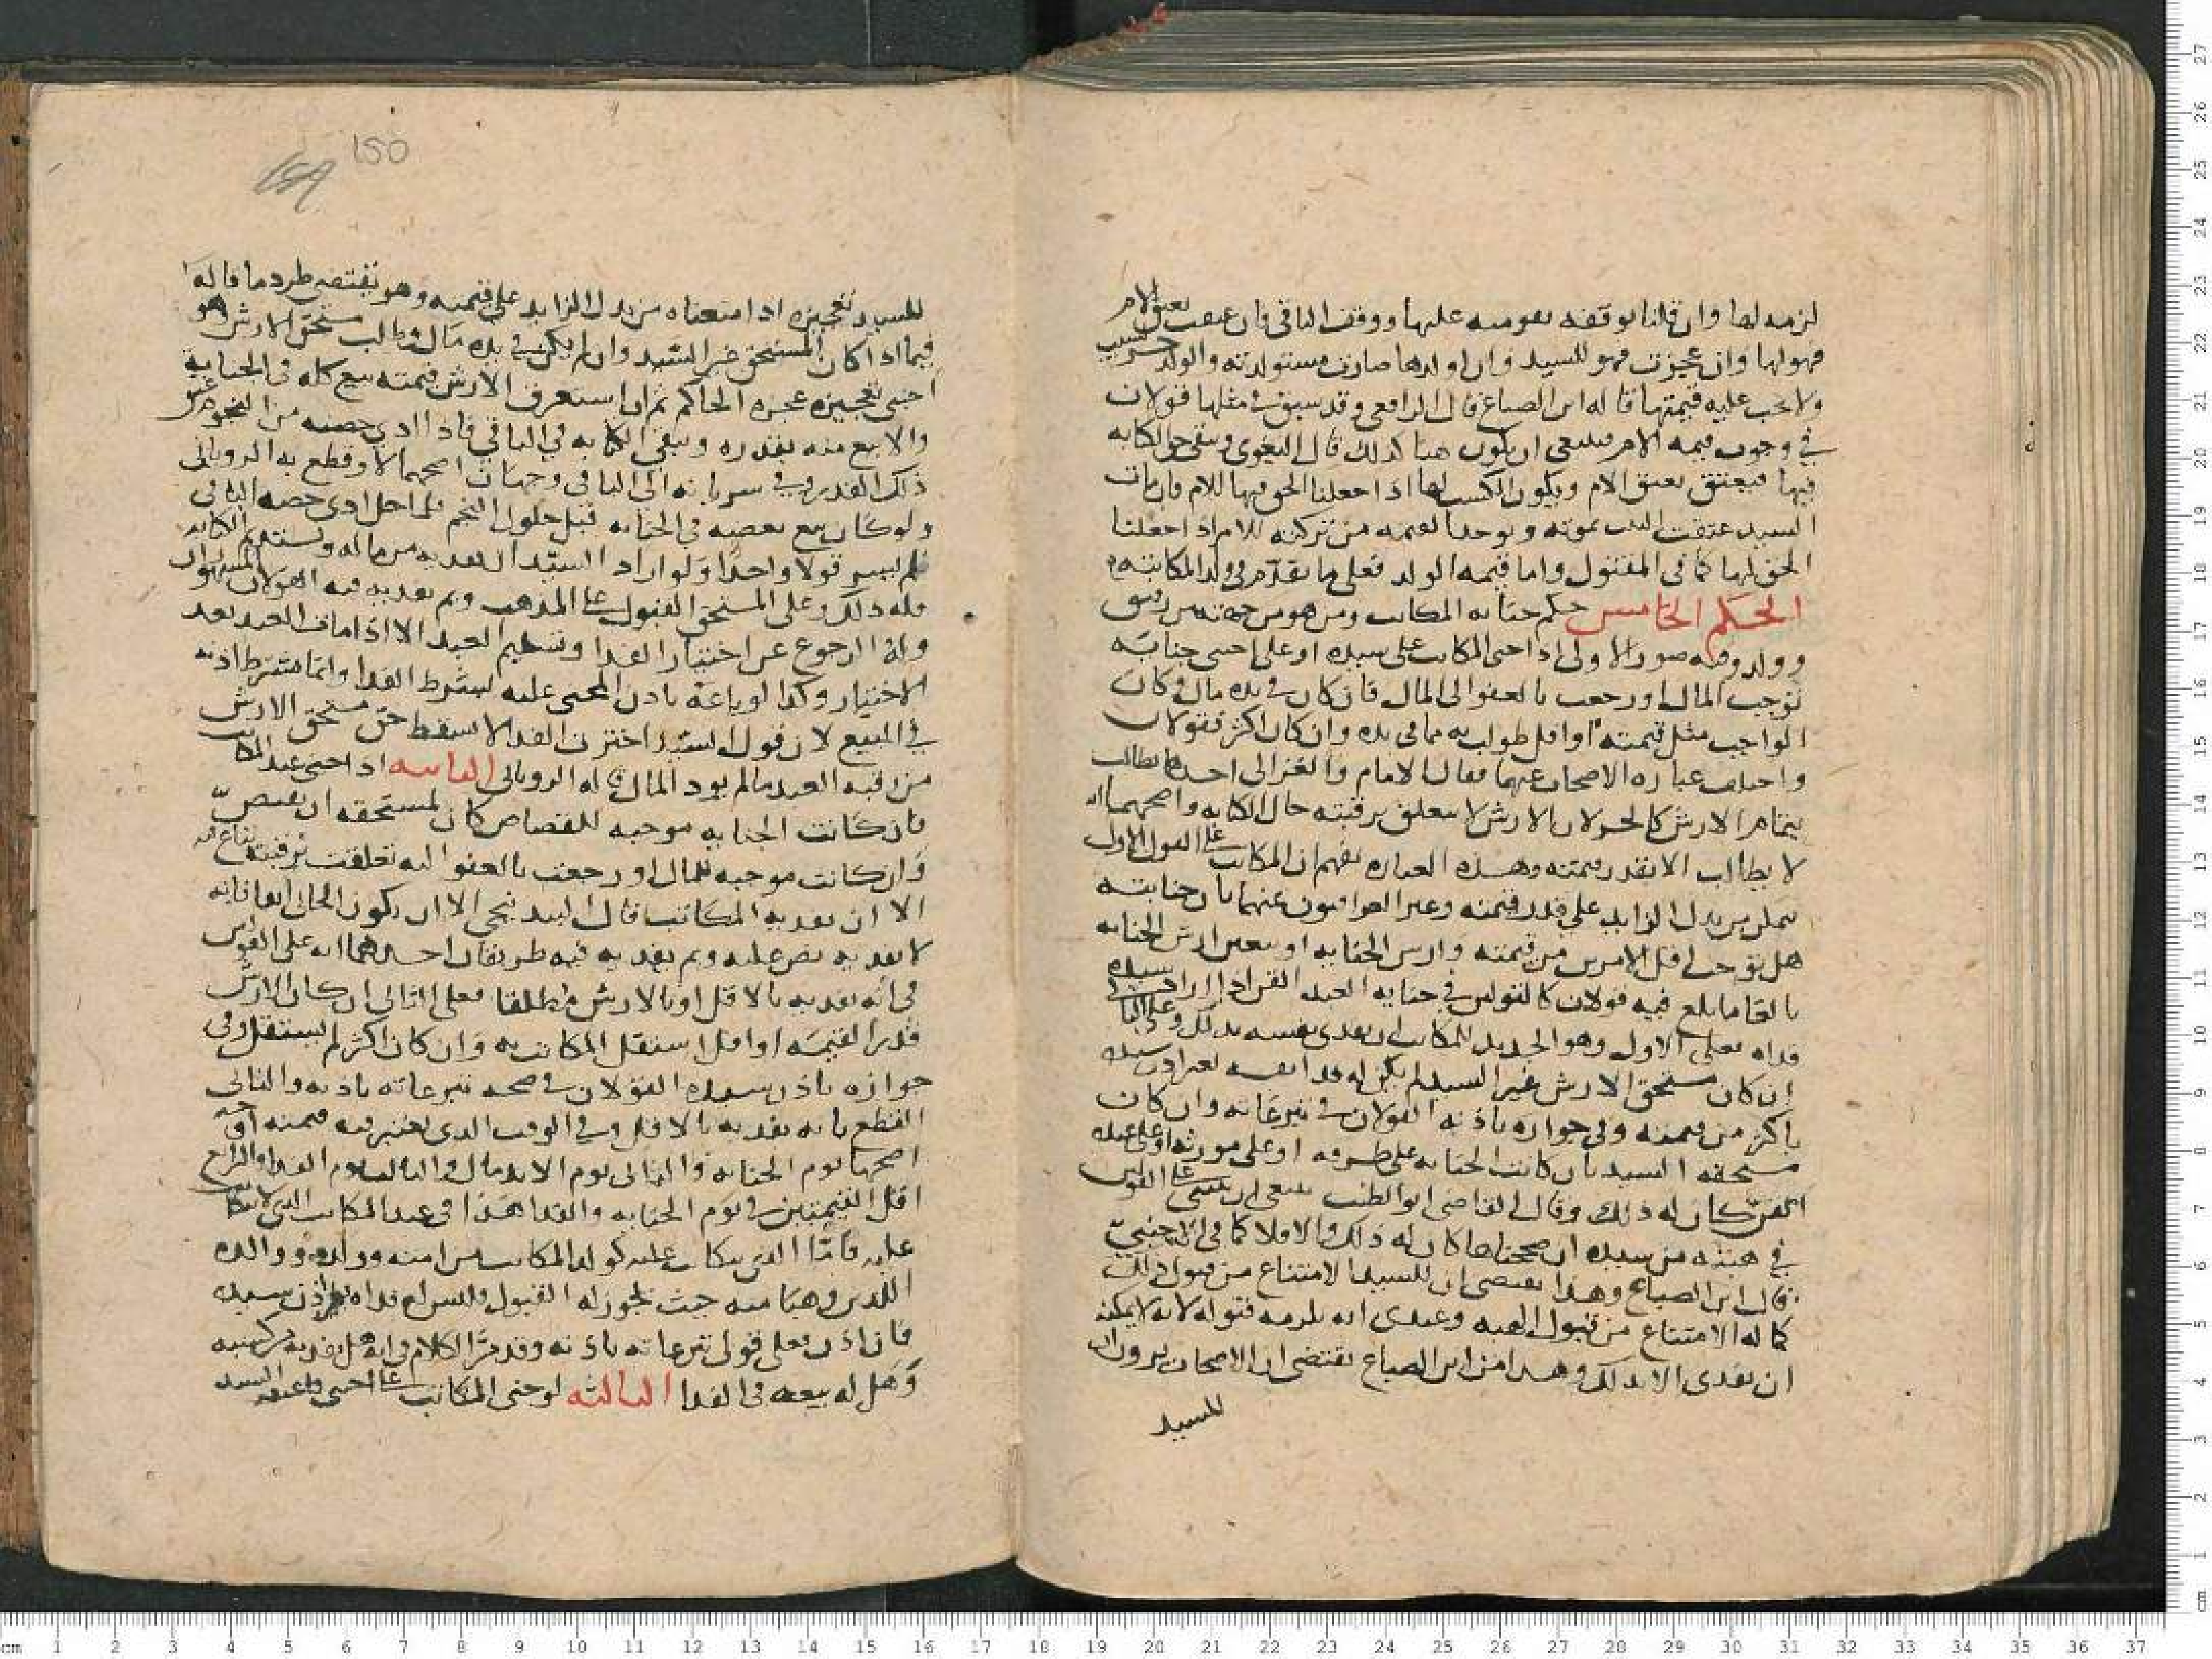 لزمه لها وان قلنا توقفه نفوميه عليها ووقف الباقي فان عتقت بعتق الام
فهو لها وان عجزت فهو للسيد وان اولدها صارت مستولدته والولد حر نسيب
ولا تجب عليه قيمتها قاله ابن الصباغ قال الرافعي وقد سبق في مثلها قولان
في وجوب قيمه الام فينبغي ان يكون هنا كذلك قال البغوي وتبقى حق الكتابه
فيها فيعتق بعتق الام ويكون الكسب لها اذا جعلنا الحق فيها للام فان مات
السيد عتقت البنت بموته ويوخذ القيمه من تركته للام اذا جعلنا
الحق لها كما في المقتول واما قيمه الولد فعلى ما تقدم في ولد المكاتبه
الحكم الخامس حكم جنايه المكاتب ومن هو من جهته من رقيق
وولد وفيه صور الاولى اذا جنى المكاتب على سيده او على اجنبي جنايه
توجب المال او رجعت بالعفو الى المال فان كان في يده مال وكان
الواجب مثل قيمته او اقل طولب به مما في يده وان كان اكثر فقولان
واختلف عباره الاصحاب عنهما فقال الامام والغزالي احدهما يطالب
بتمام الارش كالحر لان الارش لا يتعلق برقبته حال الكتابه واصحهما انه
لا يطالب الا بقدر قيمته وهذه العباره تفهم ان المكاتب على القول الاول
من بدل الزايد على قدر قيمته وعبر العراقيون عنهما بان جنايته
هل توجب اقل الامرين من قيمته وارش الجنايه او يتعين ارش الجنايه
بالغا ما بلغ فيه قولان كالقولين في جنايه العبد القن اذا اراد سيده
فداه فعلى الاول وهو الجديد للمكاتب ان يفدي نفسه بذلك وعلى الثاني
ان كان مستحق الارش غير السيد لم يكن له فدا نفسه بغير اذن سيده
باكثر من قيمته وفي جوازه باذنه القولان في تبرعاته وان كان
مستحقه السيد بان كانت الجنايه على طرفه او على مورثه او على عبده
القن كان له ذلك وقال القاضي ابو الطيب ينبغي ان يبنى على القولين
في هبته من سيده ان صححناها كان له ذلك والا فلا كما في الاجنبي
قال ابن الصباغ وهذا يقتضي ان للسيد الامتناع من قبول ذلك
كما له الامتناع من قبول الهبه وعندي انه يلزمه قبوله لانه لا يمكنه
ان يفدي الا بذلك وهذا من ابن الصباغ يقتضي ان الاصحاب يرون ان
للسيد
150
للسيد تعجيزه اذا منعناه من بدل الزايد على قيمته وهو يقتضي طرد ما قاله
فيما اذا كان المستحق غير السيد وان لم يكن في يده مال وطلب مستحق الارش هو
اجنبي تعجيزه عجزه الحاكم ثم ان استغرق الارش قيمته بيع كله في الجنايه
والا بيع منه بقدره وتبقى الكتابه في الباقي فاذا ادى حصته من النجوم عتق
ذلك القدر وفي سرايته الى الباقي وجهان اصحهما لا وقطع به الروياني
ولو كان بيع بعضه في الجنايه قبل حلول النجم فلما حل ادى حصه الباقي
لم يسر قولا واحدا ولو اراد السيد ان يفديه من ماله وتستمر الكتابه
فله ذلك وعلى المستحق القبول على المذهب وبم يفديه فيه القولان المشهوران
وله الرجوع عن اختيار الفدا وتسليم العبد الا اذا مات العبد بعد
الاختيار وكذا لو باعه باذن المجنى عليه بشرط الفدا وانما شرط اذنه
في المبيع لان قول السيد اخترت الفدا لا يسقط حق مستحق الارش
من رقبه العبد ما لم يود المال قاله الروياني الثانيه اذا جنى عبد المكاتب
فان كانت الجنايه موجبه للقصاص كان لمستحقه ان يقتص
وان كانت موجبه للمال او رجعت بالعفو اليه تعلقت برقبته يباع فيه
الا ان يفديه المكاتب قال البندنيجي الا ان يكون الجاني فانه
لا يفديه نص عليه وبم يفديه فيه طريقان احدهما انه على القولين
في انه يفديه بالاقل او بالارش مطلقا فعلى الثاني ان كان الارش
قدر القيمه او اقل استقل المكاتب به وان كان اكثر لم يستقل وفي
جوازه باذن سيده القولان في صحه تبرعاته باذنه والثاني
القطع بانه يفديه بالاقل وفي الوقت الذي يعتبر فيه قيمته اوجه
اصحها يوم الجنايه والثاني يوم الاندمال والثالث يوم الفدا والرابع
اقل القيمتين في يوم الجنايه والفدا هذا في عبد المكاتب الذي لا يتكاتب
عليه فاما الذي يتكاتب عليه كولد المكاتب من امته وولده ووالده
اللذين وهبا منه حيث يجوز له القبول فليس له فداه بغير اذن سيده
فان اذن فعلى قولي تبرعاته باذنه وقد مر الكلام في انه هل يفديه من كسبه
وهل له بيعه في الفدا الثالثه لو جنى المكاتب على اجنبي فاعتقه السيد